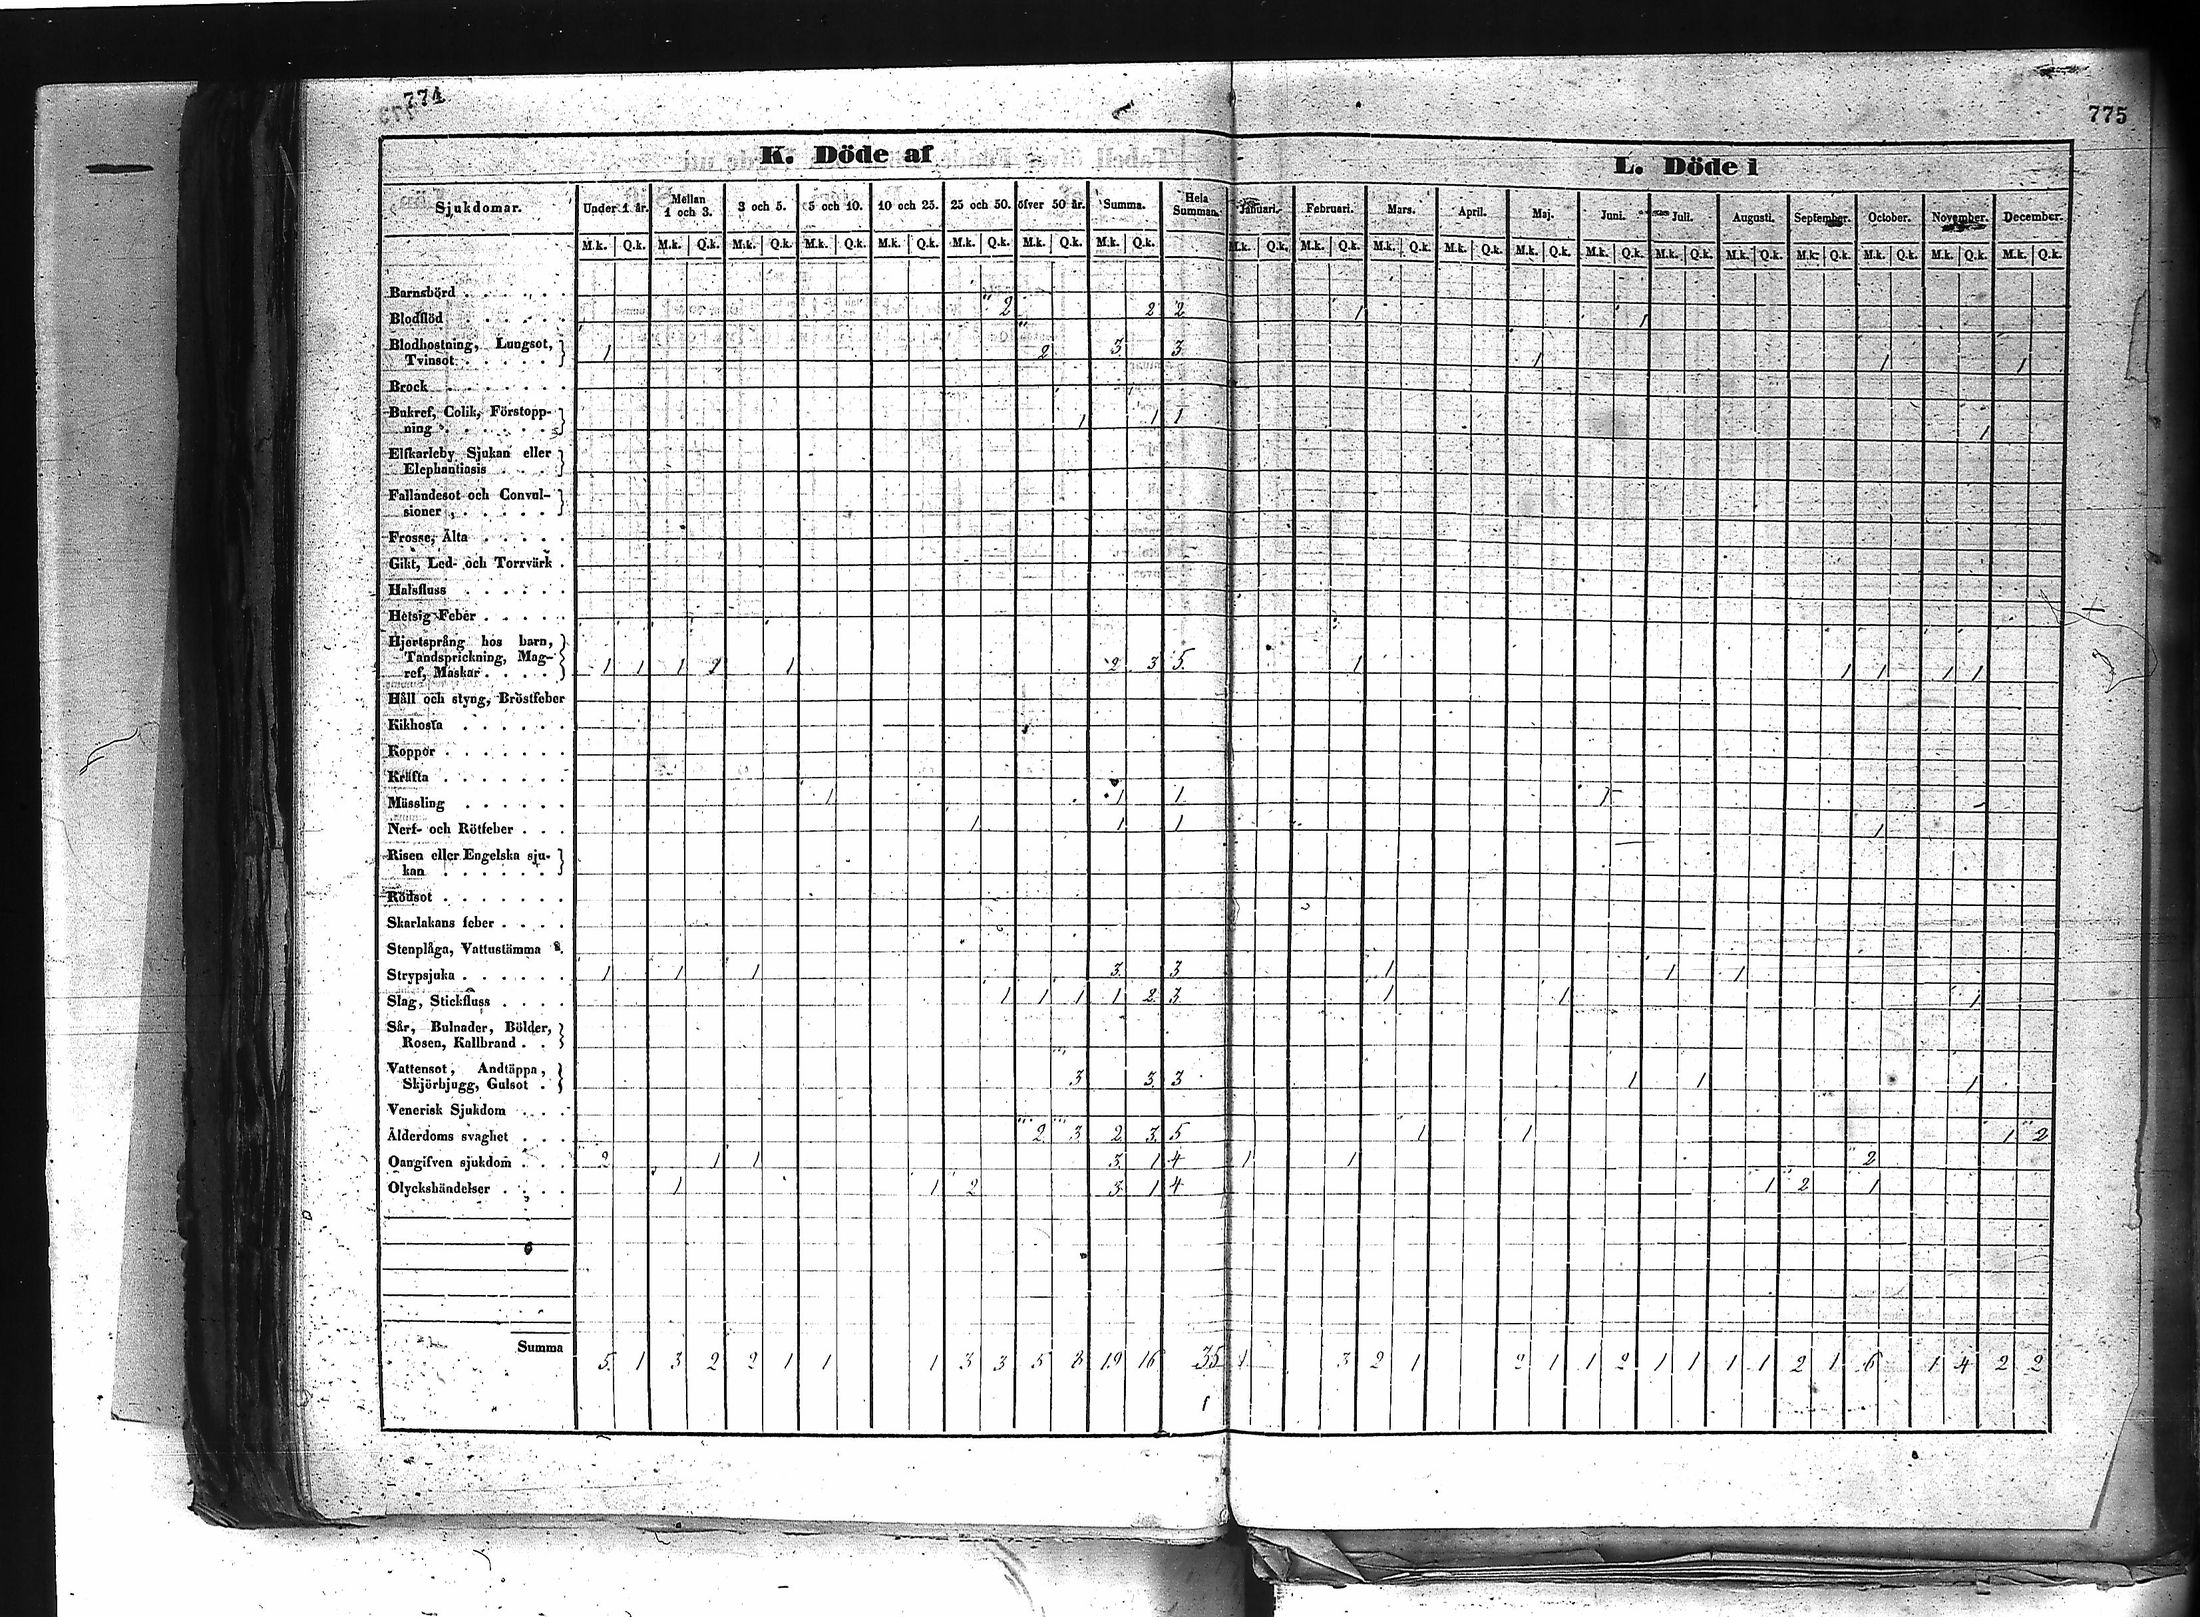 774
775
K. Döde af
L. Döde i
Sjukdomar. Under 1 år. Mellan 1 och 3. 3 och 5. 5 och 10. 10 och 25. 25 och 50. öfver 50 år. Summa. Hela Summan. Januari. Februari. Mars. April. Maj. Juni. Juli. Augusti. September. October. November. December.
M.k. Q.k. M.k. Q.k. M.k. Q.k. M.k. Q.k. M.k. Q.k. M.k. Q.k. M.k. Q.k. M.k. Q.k. M.k. Q.k. M.k. Q.k. M.k. Q.k. M.k. Q.k. M.k. Q.k. M.k. Q.k. M.k. Q.k. M.k. Q.k. M.k. Q.k. M.k. Q.k. M.k. Q.k. M.k. Q.k.
Barnsbörd . . . . . .
Blodflöd . . . . . . 2 2 2 1 1
Blodhostning, Lungsot,
Tvinsot . . . . . 1 2 3 3 1 1 1
Brock . . . . . . .
Bukref, Colik, Förstopp-
ning . . . . . . 1 1 1 1
Elfkarleby Sjukan eller
Elephantiasis . . .
Fallandesot och Convul-
sioner . . . . . .
Frosse, Älta . . . . .
Gikt, Led- och Torrvärk .
Halsfluss . . . . . .
Hetsig Feber . . . . .
Hjertsprång hos barn,
Tandsprickning, Mag-
ref, Maskar . . . . 1 1 1 1 1 2 3 5 1 1 1 1 1
Håll och styng, Bröstfeber
Kikhosta . . . . . .
Koppor . . . . . . .
Kräfta . . . . . . .
Mässling . . . . . . 1 1 1 1
Nerf- och Rötfeber . . . 1 1 1 1
Risen eller Engelska sju-
kan . . . . . .
Rödsot . . . . . . .
Skarlakans feber . . . .
Stenplåga, Vattustämma .
Strypsjuka . . . . . . 1 1 1 3 3 1 1 1
Slag, Stickfluss . . . . 1 1 1 1 2 3 1 1 1
Sår, Bulnader, Bölder,
Rosen, Kallbrand . .
Vattensot, Andtäppa,
Skjörbjugg, Gulsot . 3 3 3 1 1 1
Venerisk Sjukdom . . .
Ålderdoms svaghet . . . 2 3 2 3 5 1 1 1 2
Oangifven sjukdom . . . 2 1 1 3 1 4 1 1 2
Olyckshändelser . . . . 1 1 2 3 1 4 1 2 1
Summa 5 1 3 2 2 1 1 1 3 3 5 8 19 16 35 1 3 2 1 2 1 1 2 1 1 1 1 2 1 6 1 4 2 2